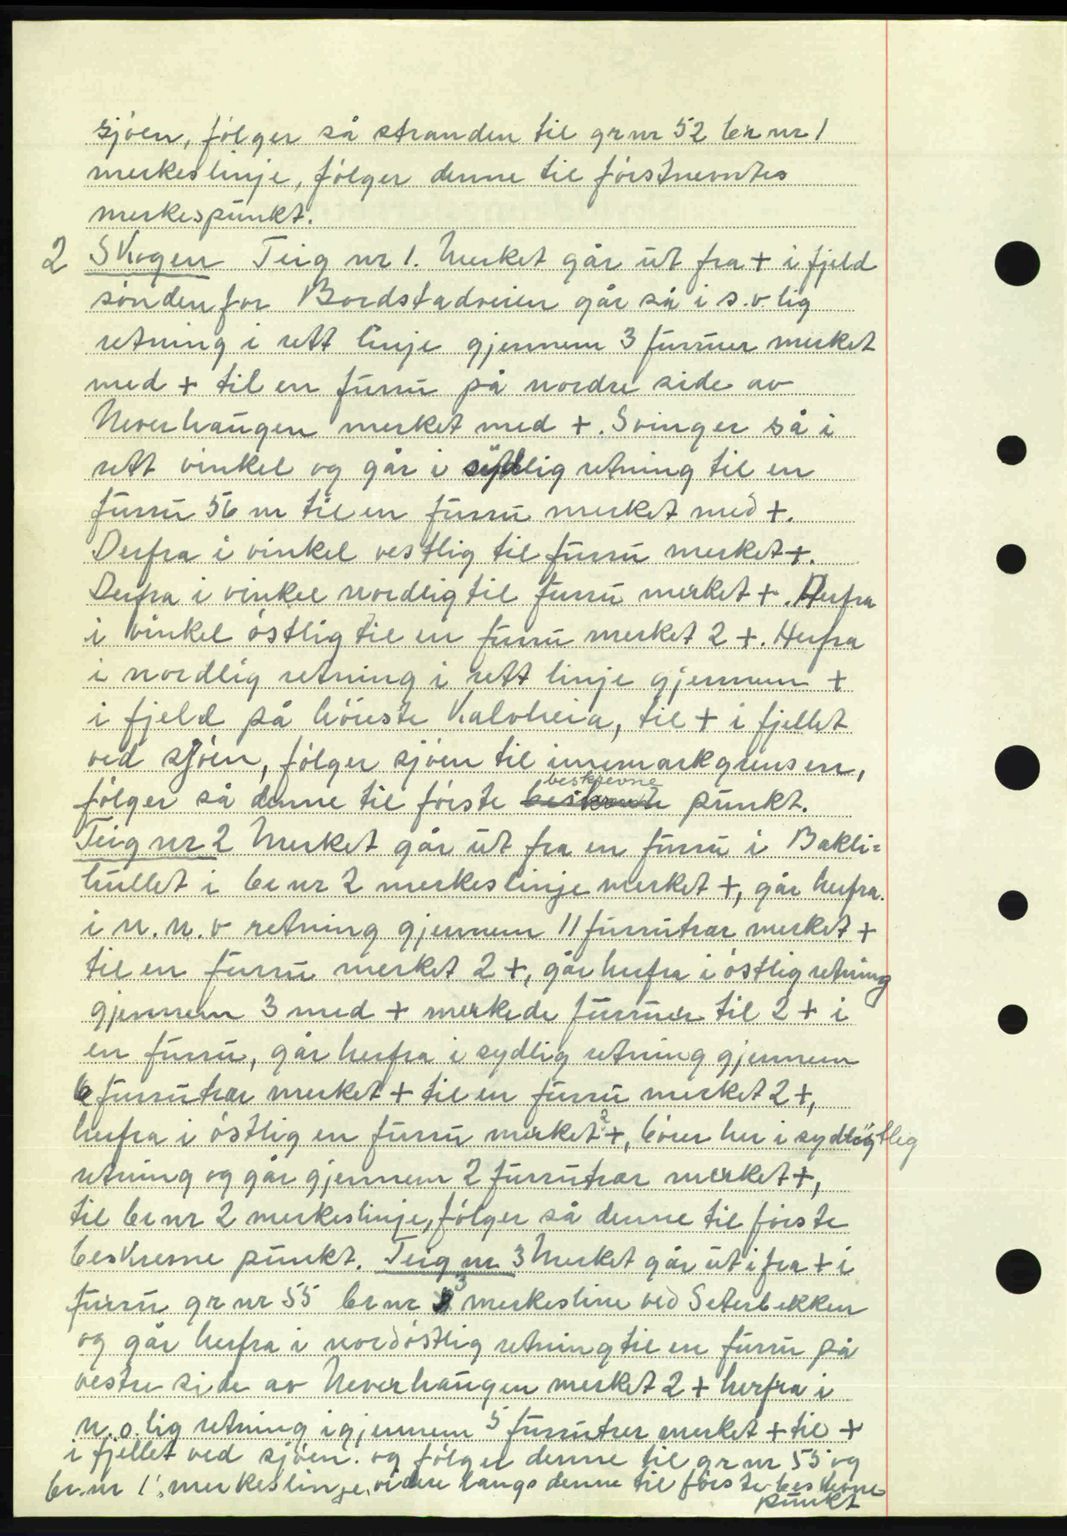 sjöen, fölger så stranden til gr nr 52 br nr 1
merkeslinje, fölger denne til förstnevntes
merkespunkt.
2 Skogen Teig nr 1. Merket går ut fra + i fjeld
sönden for Bordstadveien går så i s.v. lig
retning i rett linje gjennem 3 furruer merket
med + til en furru på nordre side av
Neverhaugen merket med +. Svinger så i
rett vinkel og går i sydlig retning til en
furru 56 m til en furru merket med +.
Derfra i vinkel vestlig til furru merket +.
Derfra i vinkel nordlig til furru merket +. Herfra
i vinkel östlig til en furru merket 2 +. Herfra
i nordlig retning i rett linje gjennem +
i fjeld på höieste Kalvheia, til + i fjellet
ved sjöen, fölger sjöen til innmarkgrensen,
fölger så denne til förste beskrevne punkt.
Teig nr 2 Merket går ut fra en furru i Bakli=
hullet i br nr 2 merkeslinje merket +, går herfra
i n. n. v retning gjennem 11 furrutrær merket +
til en furru merket 2 +, går herfra i östlig retning
gjennem 3 med + merkede furruer til 2 + i
en furru, går herfra i sydlig retning gjennem
6 furrutrær merket + til en furru merket 2 +,
herfra i östlig en furru merket 2 +, böier her i sydöstlig
retning og går gjennem 2 furrutrær merket +,
til br nr 2 merkeslinje, fölger så denne til förste
beskrevne punkt. Teig nr 3 Merket går ut i fra + i
furru gr nr 55 br nr 3 merkesline ved Seterbekken
og går herfra i nordöstlig retning til en furru på
vestre side av Neverhaugen merket 2 + herfra i
n.o. lig retning igjennem 5 furrutrer merket + til +
i fjellet ved sjöen. og fölger denne til gr nr 55 og
br. nr 1. merkeslinje, videre langs denne til förste beskrevne
punkt